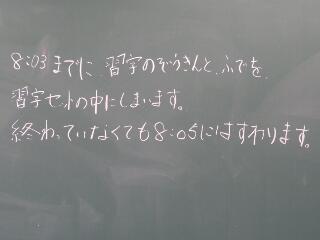 8:03までに 習字のぞうきんと、ふでを、
習字セットの中にしまいます。
終わっていなくても8:05にはすわります。